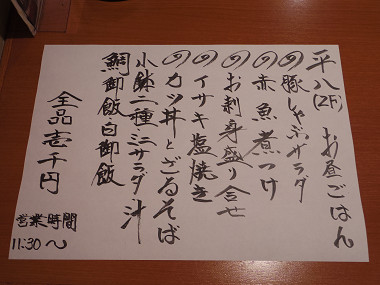 平八(2F) お昼ごはん
の豚しゃぶサラダ
の赤魚煮つけ
のお刺身盛り合せ
のイサキ塩焼き
のカツ丼とざるそば
小鉢二種ミニサラダ汁
鯛御飯白御飯
全品壱千円
営業時間
11:30〜